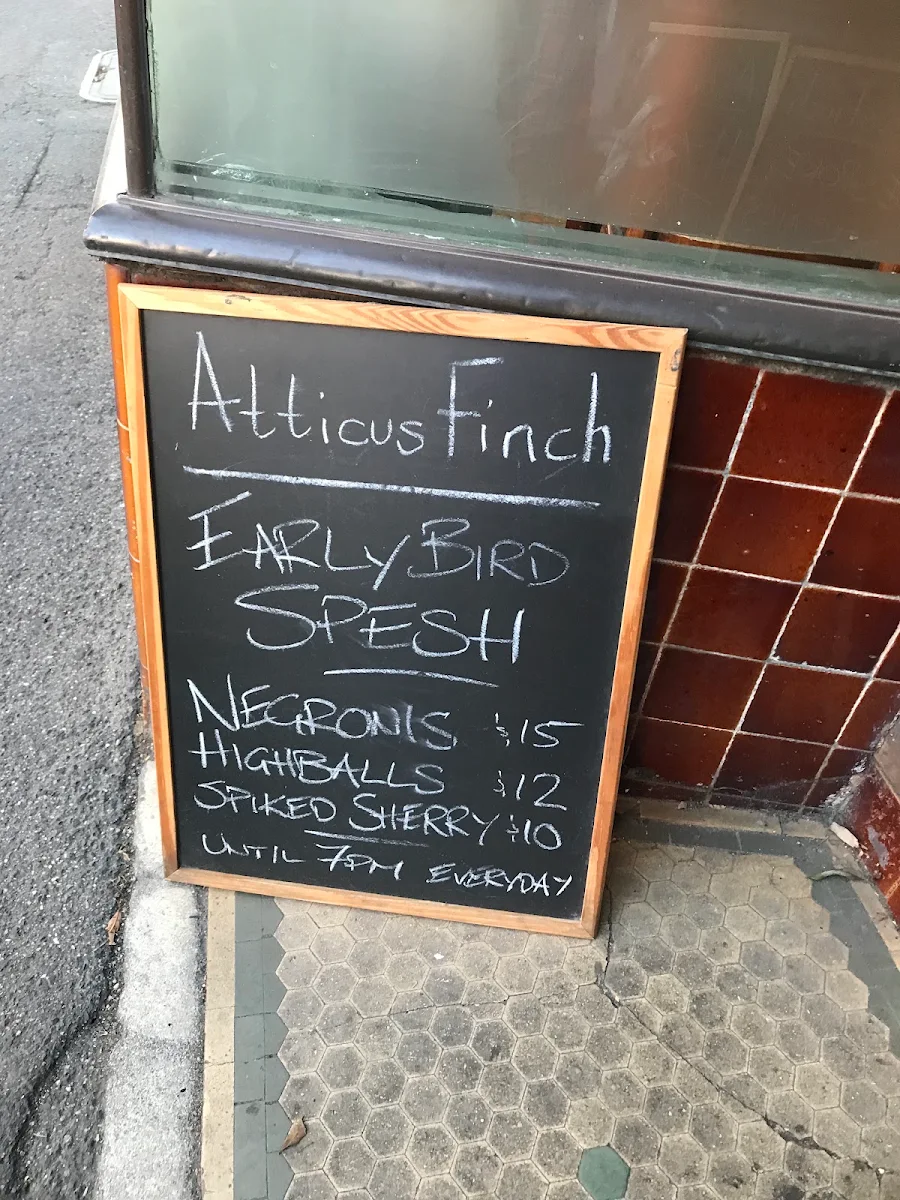 Atticus Finch
EARLY BIRD
SPESH
NEGRONIS $15
HIGHBALLS $12
SPIKED SHERRY $10
UNTIL 7PM EVERYDAY